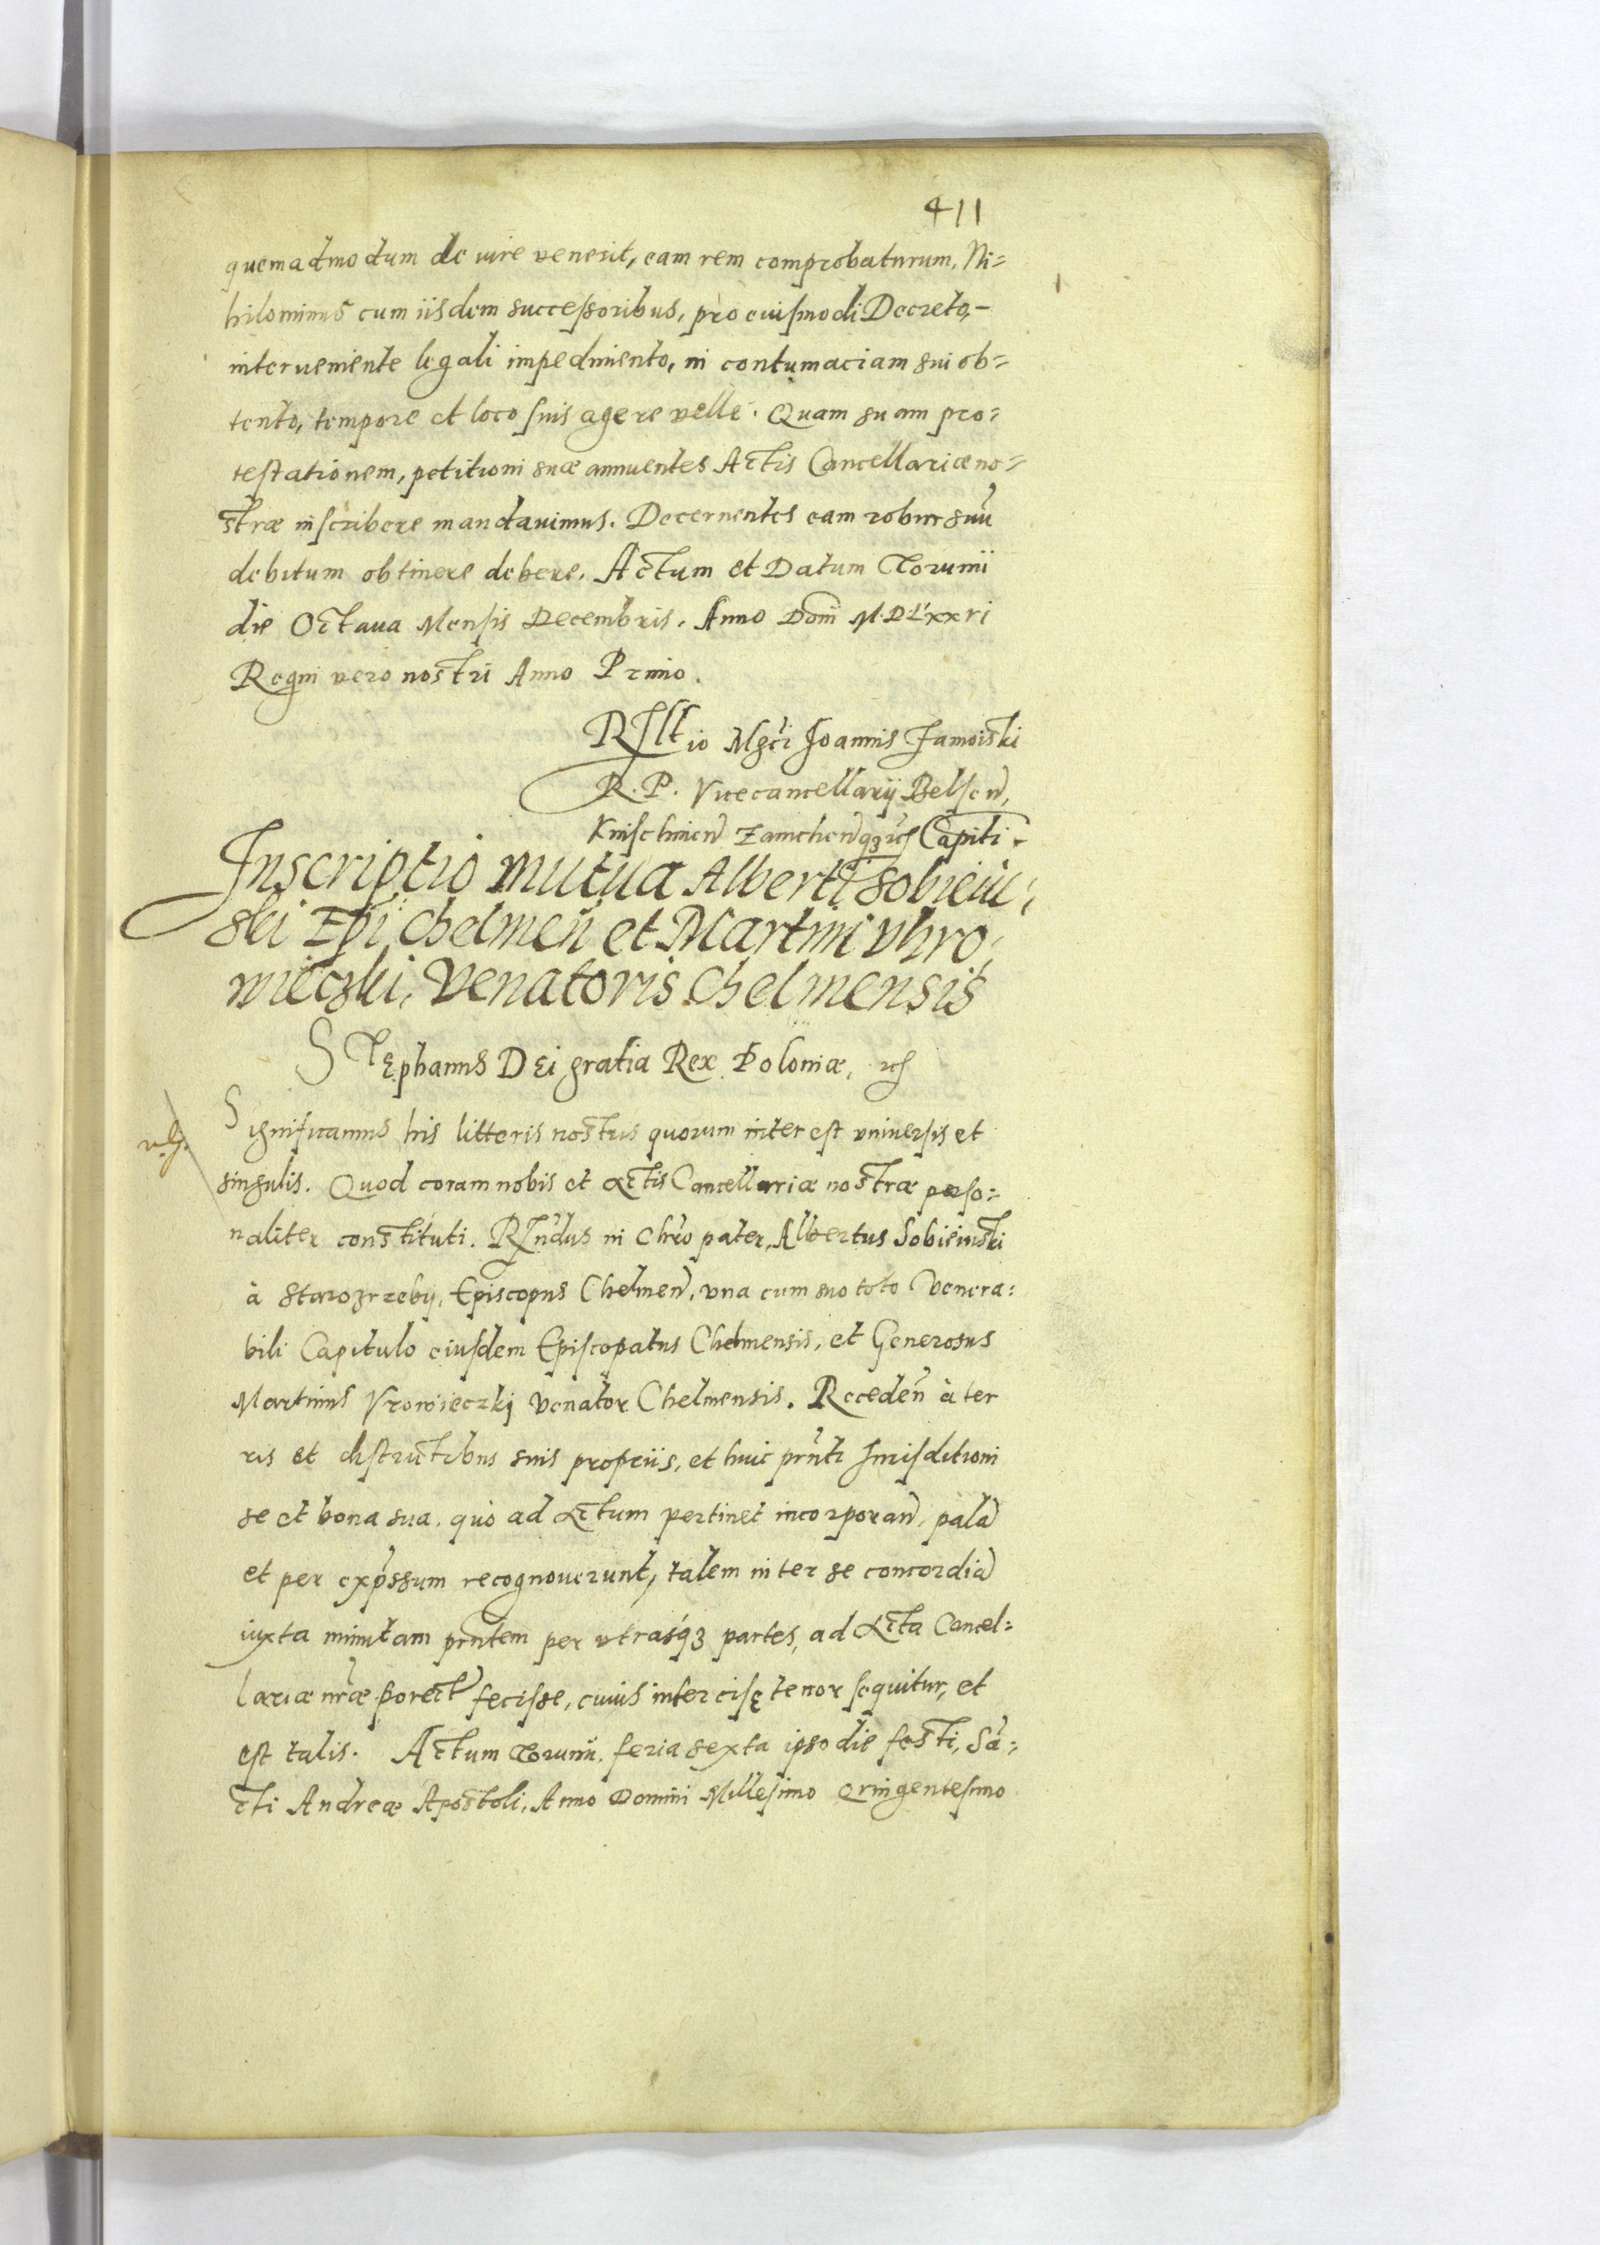 411
quemadmodum de iure venerit, eam rem comprobaturum. Ni=
hilominus cum iisdem successoribus, pro eiusmodi Decreto,
interueniente legali impedimento, in contumaciam sui ob=
tento, tempore et loco suis agere velle. Quam suam pro=
testationem, petitioni suæ annuentes Actis Cancellariæ no=
stræ inscribere mandauimus. Decernentes eam robur suũ
debitum obtinere debere. Actum et Datum Torunii
die Octaua Mensis Decembris. Anno Dom̃ M.D.Lxxvi
Regni vero nostri Anno Primo.
Rltio Mgci Joannis Zamoiski
R. P. Vicecancellarij Belsen,
Knischinen Zamchenqȝ ec Capiti.
Inscriptio mutua Alberti Sobieiu=
ski Epi Chelmen et Martini Vhro=
wieczki, Venatoris Chelmensis
Stephanus Dei gratia Rex Poloniæ, ec
Significamus his litteris nostris quorum interest vniuersis et
singulis. Quod coram nobis et Actis Cancellariæ nostræ perso=
naliter constituti. Rndus in Chro pater, Albertus Sobieiuski
à Starozrzeby, Episcopus Chelmen, vna cum suo toto Venera=
bili Capitulo eiusdem Episcopatus Chelmensis, et Generosus
Martinus Vrowieczkj Venator Chelmensis. Receden à ter
ris et districtibus suis propriis, et huic prnti Jurisditioni
se et bona sua, quò ad Actum pertinet incorporan, palã
et per expssum recognouerunt, talem inter se concordiã
iuxta minutam prntem per vtrasqȝ partes, ad Acta Cancel=
lariæ nræ porect fecisse, cuius intercisę tenor sequitur, et
est talis. Actum Torunii, feria sexta ipso die festi, Sã=
cti Andreæ Apostoli, Anno Domini Millesimo Qringentesimo